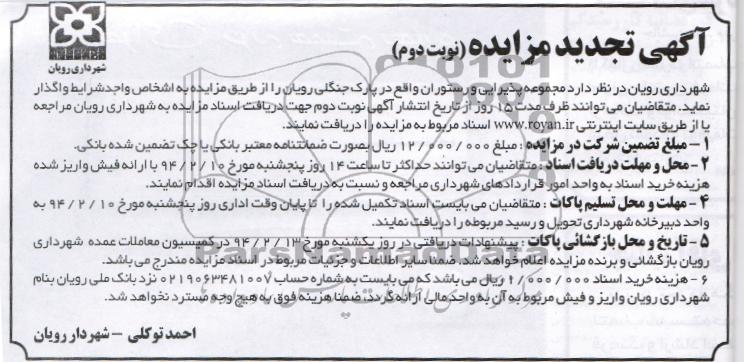 آگهی تجدید مزایده (نوبت دوم)
شهرداری رویان
شهرداری رویان در نظر دارد مجموعه پذیرایی و رستوران واقع در پارک جنگلی رویان را از طریق مزایده به اشخاص واجد شرایط واگذار
نماید. متقاضیان می توانند ظرف مدت ۱۵ روز از تاریخ انتشار آگهی نوبت دوم جهت دریافت اسناد مزایده به شهرداری رویان مراجعه
یا از طریق سایت اینترنتی www.royan.ir اسناد مربوط به مزایده را دریافت نمایند.
۱- مبلغ تضمین شرکت در مزایده : مبلغ ۱۲/۰۰۰/۰۰۰ ریال بصورت ضمانتنامه معتبر بانکی یا چک تضمین شده بانکی.
۲- محل و مهلت دریافت اسناد : متقاضیان می توانند حداکثر تا ساعت ۱۴ روز پنجشنبه مورخ ۹۴/۲/۱۰ با ارائه فیش واریز شده
هزینه خرید اسناد به واحد امور قراردادهای شهرداری مراجعه و نسبت به دریافت اسناد مزایده اقدام نمایند.
۴- مهلت و محل تسلیم پاکات : متقاضیان می بایست اسناد تکمیل شده را تا پایان وقت اداری روز پنجشنبه مورخ ۹۴/۲/۱۰ به
واحد دبیرخانه شهرداری تحویل و رسید مربوطه را دریافت نمایند.
۵- تاریخ و محل بازگشائی پاکات : پیشنهادات دریافتی در روز یکشنبه مورخ ۹۴/۲/۱۳ در کمیسیون معاملات عمده شهرداری
رویان بازگشائی و برنده مزایده اعلام خواهد شد. ضمنا سایر اطلاعات و جزئیات مربوط در اسناد مزایده مندرج می باشد.
۶- هزینه خرید اسناد ۱/۰۰۰/۰۰۰ ریال می باشد که می بایست به شماره حساب ۰۲۱۹۰۶۳۴۸۱۰۰۷ نزد بانک ملی رویان بنام
شهرداری رویان واریز و فیش مربوط به آن به واحد مالی ارائه گردد. ضمنا هزینه فوق به هیچ وجه مسترد نخواهد شد.
احمد توکلی - شهردار رویان